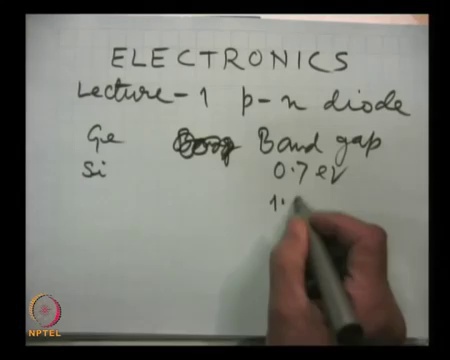 ELECTRONICS
Lecture-1 p-n diode
Ge Band gap
Si 0.7 eV
1.
NPTEL